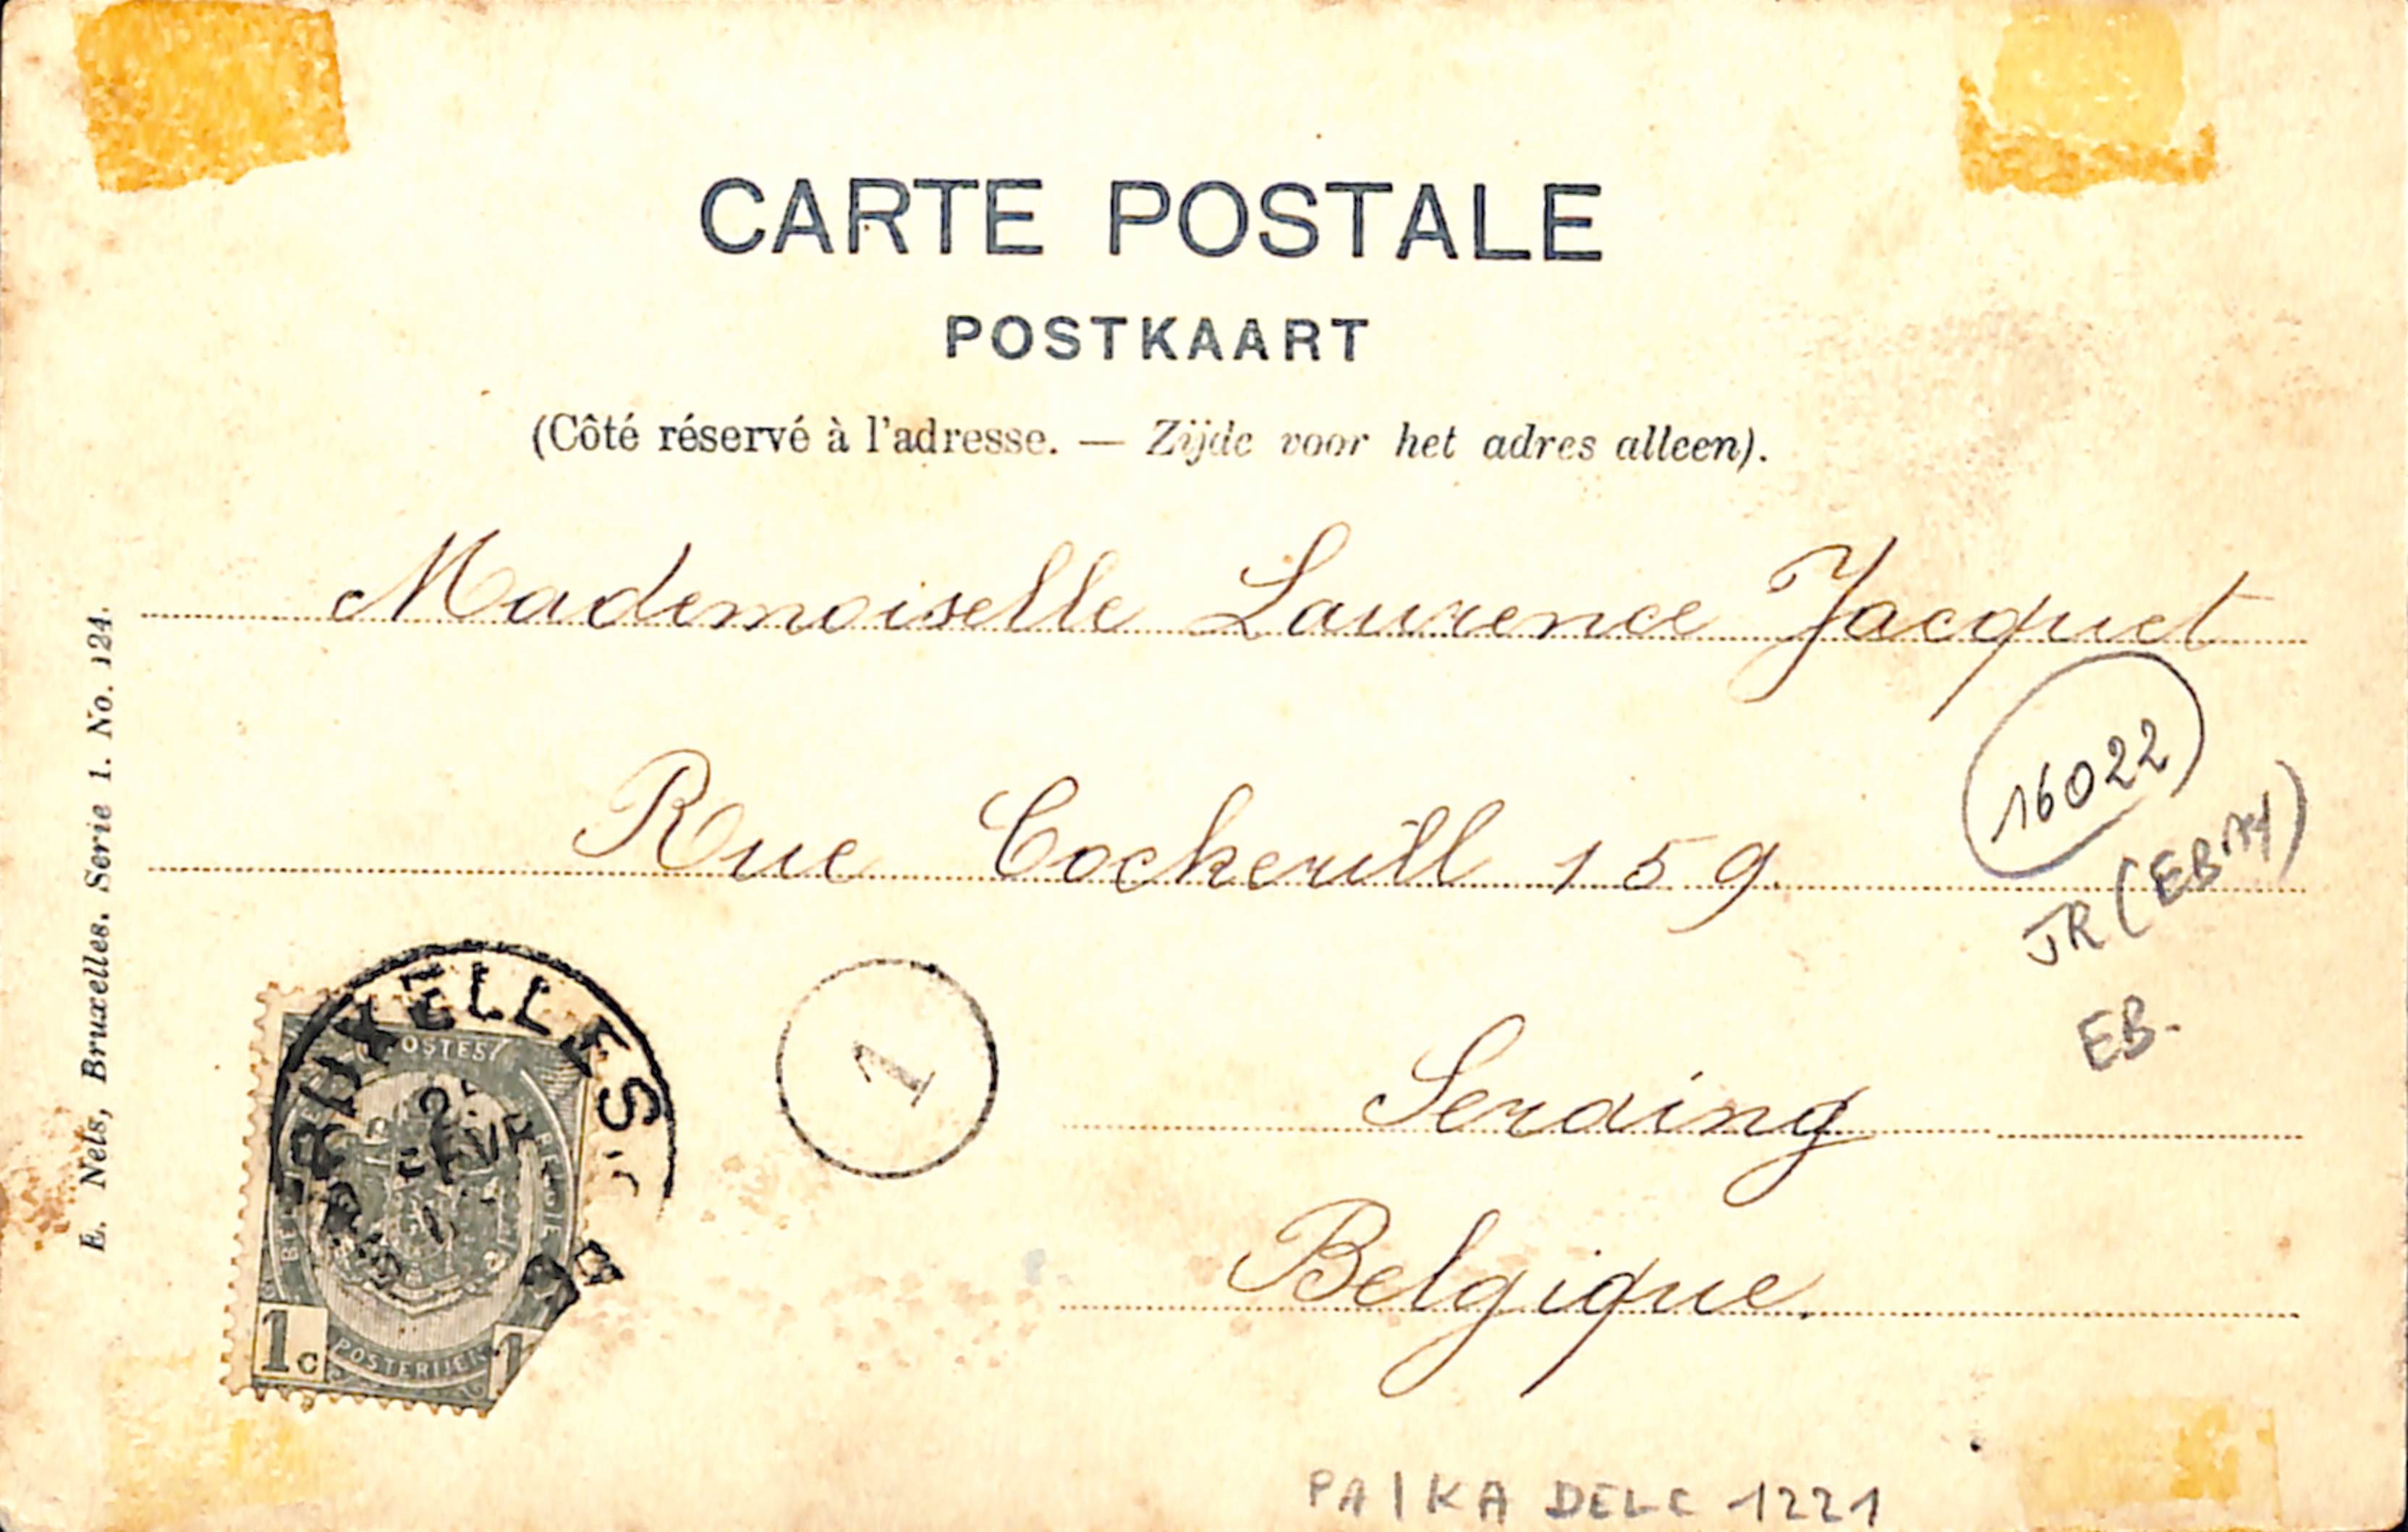 CARTE POSTALE
POSTKAART
(Côté réservé à l'adresse. — Zijde voor het adres alleen).
Mademoiselle Laurence Jacquet
Rue Cockerill 159
Seraing
Belgique.
16022
JR (EB
EB-
E. Nels, Bruxelles. Serie 1. No. 124.
BRUXELLES
1
POSTES
BELGIQUE
POSTERIJEN
1c
1
PA/KA DELC 1221